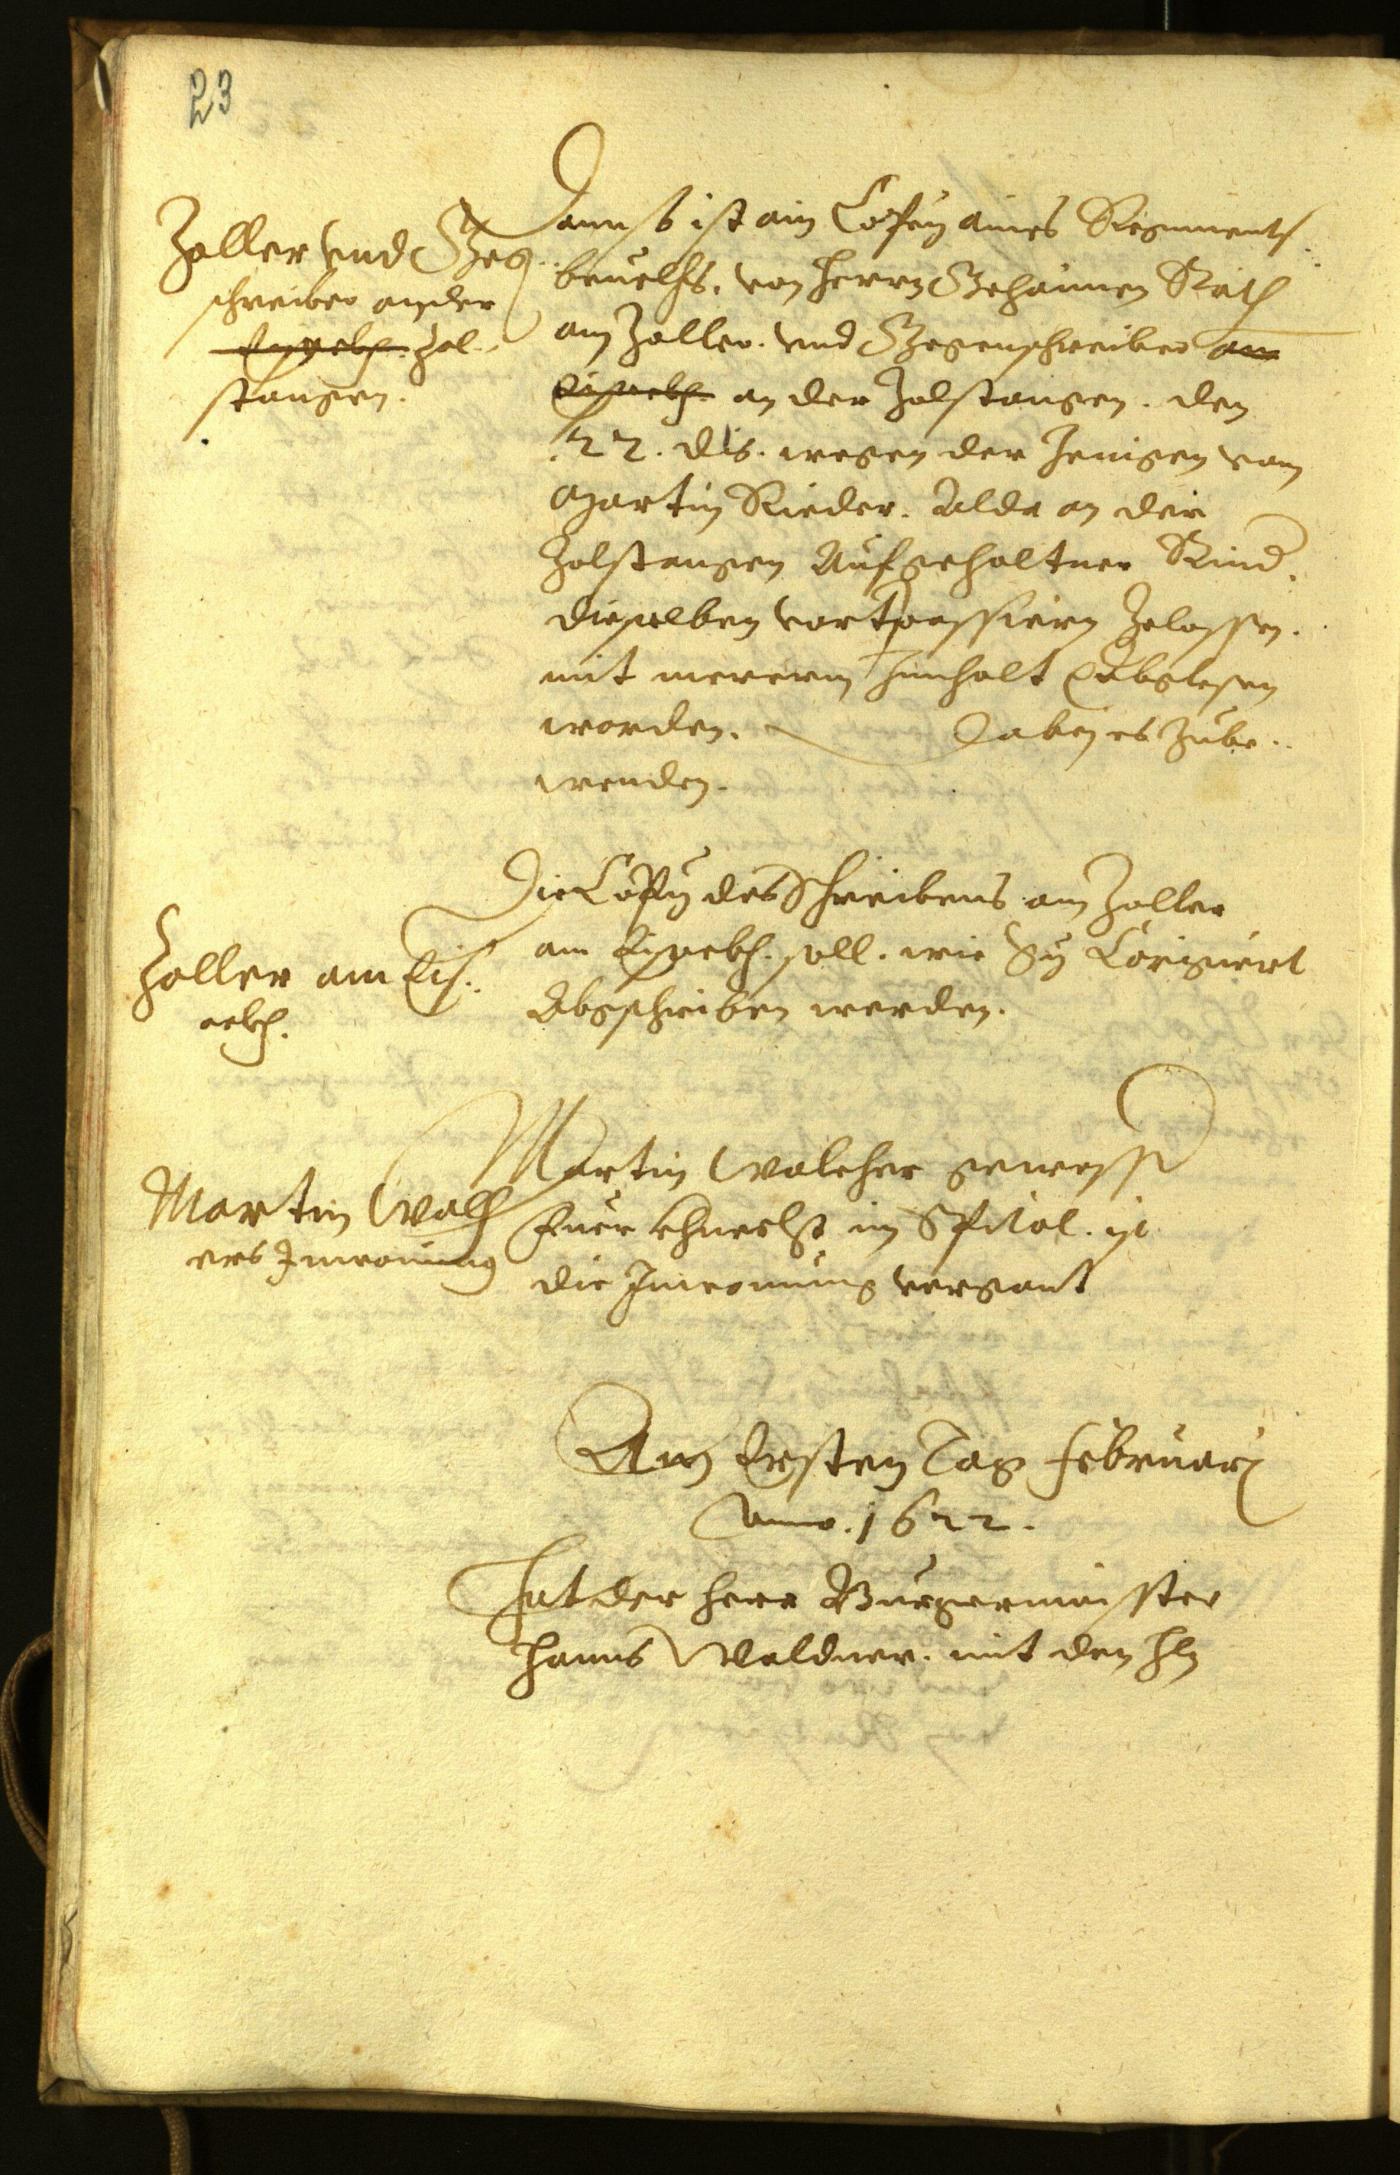 23
Zoller vnd Geg
schreiber an der
Eisackh. Zol
stangen.
Dann so ist ain Copey aines Regiments
beuelchs, von herrn Gehaimen Räth
am Zoller. vnd Gegenschreiber am
Eisackh. an der Zolstangen. den
22. dis. wegen der Jenigen vom
Martin Rieder. Alda an der
Zolstangen Aufgehaltner Rind.
dieselben vortpassiern Zelassen.
mit mererm Innhalt Abgelesen
worden. Dabey es Zube
wenden.
Zoller am Eis
ackh.
Die Copy des Schreibens am Zoller
am Eisackh. soll. wie Sy Corigiert
Abgschriben werden.
Martin Walch
ers Inwonung
Martin Walcher gewesster
Fuer khnecht im Spital. ist
die Inwonung vergont
Am Ersten Tag Februarj
Anno. 1622.
Hat der herr Burgermaister
Hanns Waldner. mit den Hn